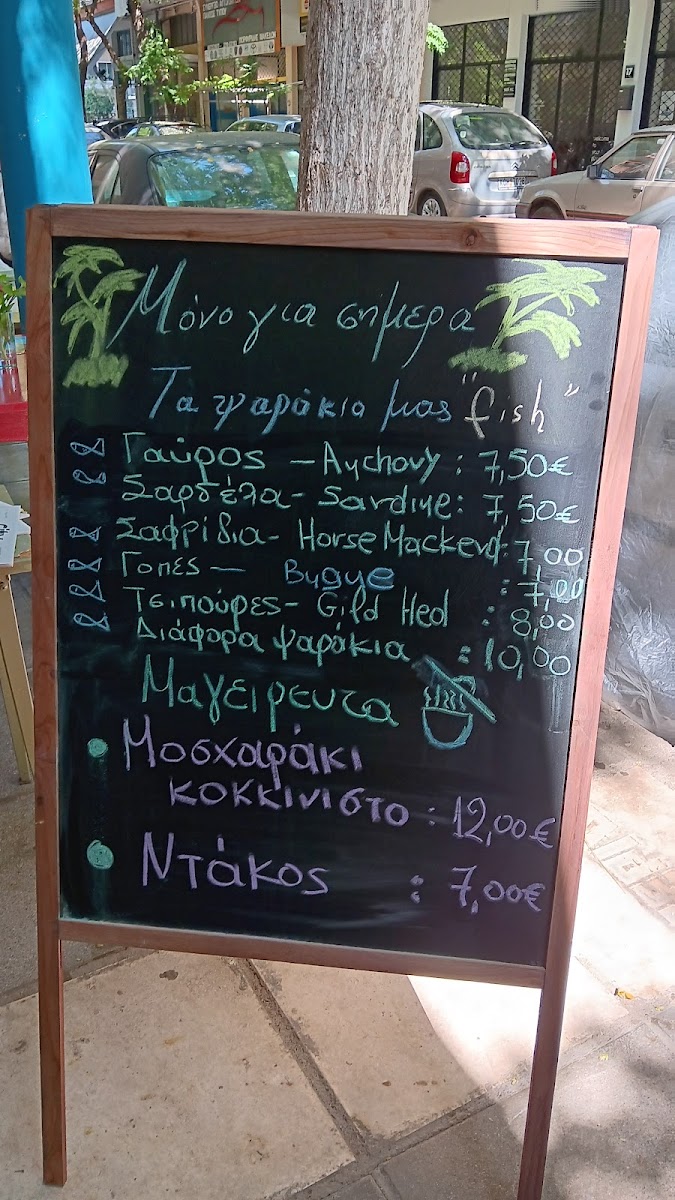 Μόνο για σήμερα
Τα ψαράκια μας "fish"
Γαύρος - Anchovy : 7,50€
Σαρδέλα - Sardine : 7,50€
Σαφρίδια - Horse Mackerel : 7,00
Γοπες - Bygye : 7,00
Τσιπούρες - Gild Hed : 8,00
Διάφορα ψαράκια : 10,00
Μαγειρευτα
Μοσχαράκι
κοκκινιστο : 12,00€
Ντάκος : 7,00€